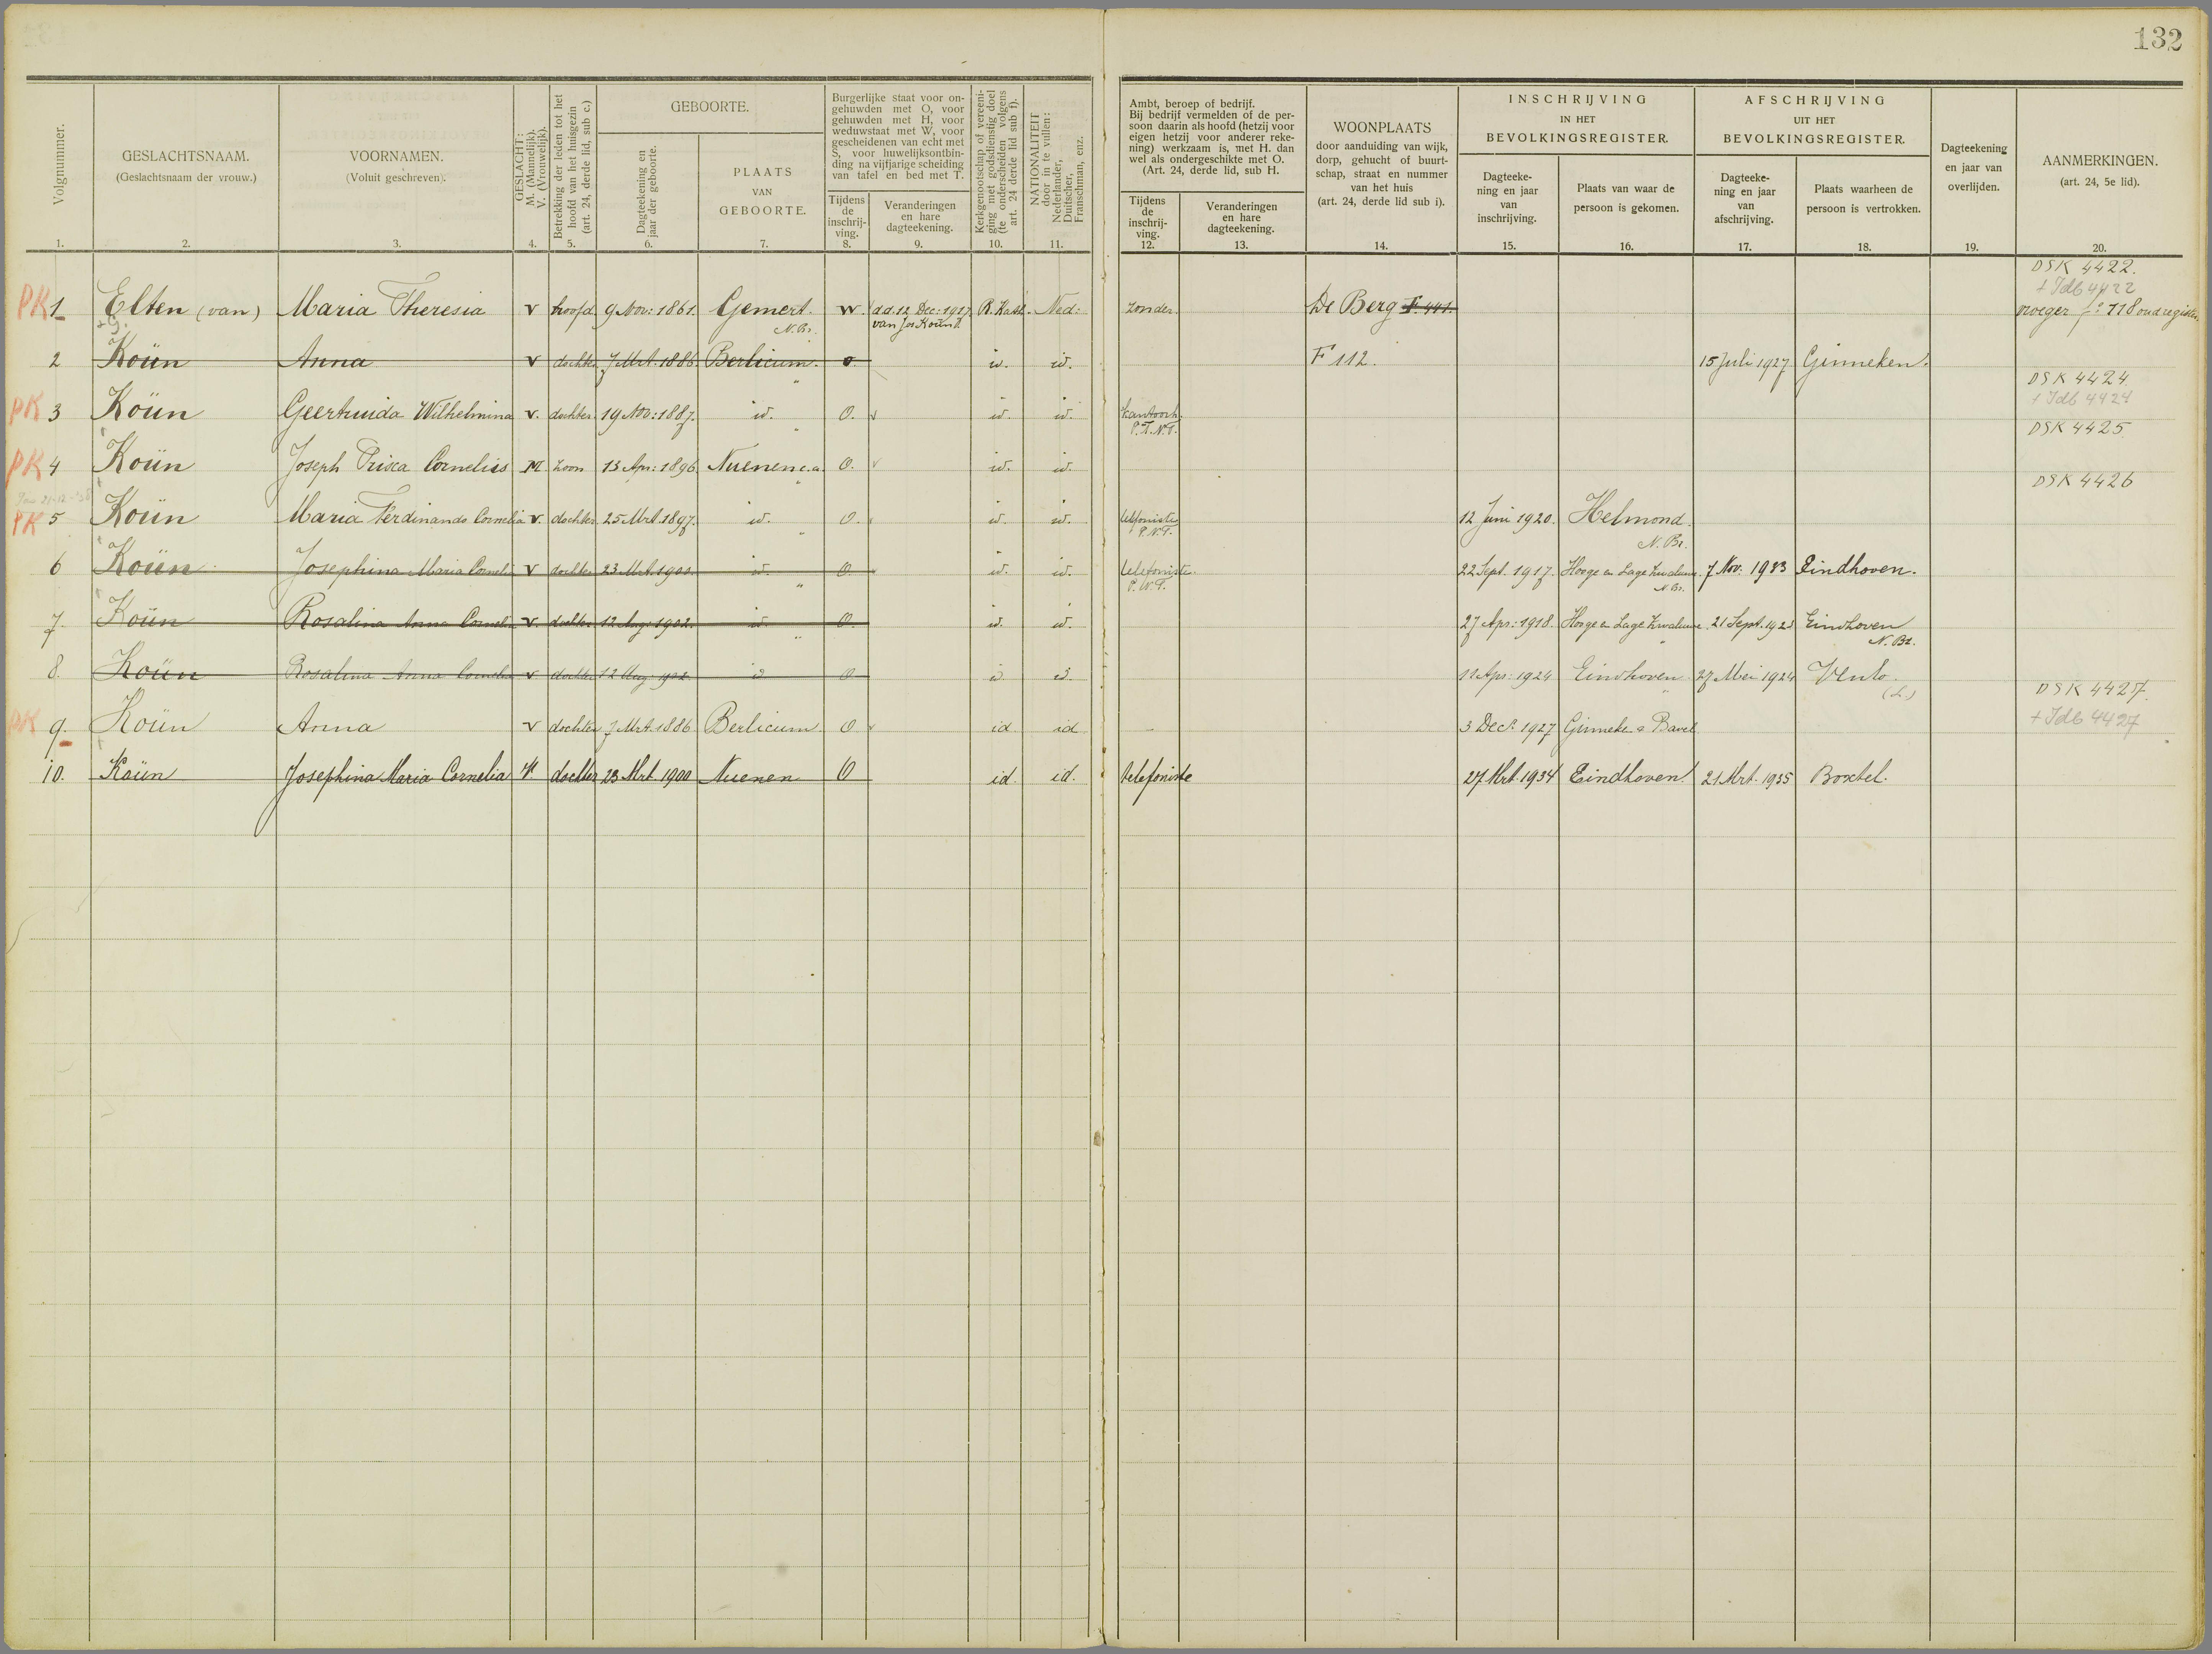 132
Volgnummer.
1.
GESLACHTSNAAM.
(Geslachtsnaam der vrouw.)
2.
VOORNAMEN.
(Voluit geschreven).
3.
GESLACHT:
M. (Mannelijk).
V. (Vrouwelijk).
4.
Betrekking der leden tot het
hoofd van het huisgezin
(art. 24, derde lid, sub c.)
5.
GEBOORTE.
Dagteekening en
jaar der geboorte.
6.
PLAATS
VAN
GEBOORTE.
7.
Burgerlijke staat voor on-
gehuwden met O, voor
gehuwden met H, voor
weduwstaat met W, voor
gescheidenen van echt met
S, voor huwelijksontbin-
ding na vijfjarige scheiding
van tafel en bed met T.
Tijdens
de
inschrij-
ving.
8.
Veranderingen
en hare
dagteekening.
9.
Kerkgenootschap of vereeni-
ging met godsdienstig doel
(te onderscheiden volgens
art. 24 derde lid sub f).
10.
NATIONALITEIT
door in te vullen:
Nederlander,
Duitscher,
Franschman, enz.
11.
Ambt, beroep of bedrijf.
Bij bedrijf vermelden of de per-
soon daarin als hoofd (hetzij voor
eigen hetzij voor anderer reke-
ning) werkzaam is, met H. dan
wel als ondergeschikte met O.
(Art. 24, derde lid, sub H.
Tijdens
de
inschrij-
ving.
12.
Veranderingen
en hare
dagteekening.
13.
WOONPLAATS
door aanduiding van wijk,
dorp, gehucht of buurt-
schap, straat en nummer
van het huis
(art. 24, derde lid sub i).
14.
INSCHRIJVING
IN HET
BEVOLKINGSREGISTER.
Dagteeke-
ning en jaar
van
inschrijving.
15.
Plaats van waar de
persoon is gekomen.
16.
AFSCHRIJVING
UIT HET
BEVOLKINGSREGISTER.
Dagteeke-
ning en jaar
van
afschrijving.
17.
Plaats waarheen de
persoon is vertrokken.
18.
Dagteekening
en jaar van
overlijden.
19.
AANMERKINGEN.
(art. 24, 5e lid).
20.
DSK 4422.
+ Idb 4422
PK 1 Elten (van) Maria Theresia V hoofd 9 Nov: 1861. Gemert. N.Br. W. d.d. 12 Dec: 1917 van Jos Koün. R. Kath. Ned: zonder. De Berg F. 441. vroeger fo 718 oud register
2 Koün Anna V dochter 7 Mrt. 1886. Berlicum. " O. id. id. F 112. 15 Juli 1927 Ginneken.
DSK 4424.
+ Idb 4424
PK 3 Koün Geertruida Wilhelmina V. dochter. 19 Nov: 1887. id. " O. id. id. kantoorh. P.T.N.T.
DSK 4425
PK 4 Koün Joseph Prisca Cornelis M. zoon 13 Apr: 1896. Nuenen c.a. " O. id. id.
DSK 4426
PK 5 Koün Maria Ferdinando Cornelia V. dochter. 25 Mrt. 1897. id. " O. id. id. telefoniste P.N.T. 12 Juni 1920. Helmond. N. Br.
6 Koün Josephina Maria Cornelia V dochter 23 Mrt. 1900. id. " O. id. id. telefoniste. P.N.T. 22 Sept. 1917. Hooge en Lage Zwaluwe. N.Br. 7 Nov. 1933 Eindhoven.
7 Koün Rosalina Anna Cornelia V. dochter 12 Aug: 1902. id. " O. id. id. 27 Apr: 1918. Hooge en Lage Zwaluwe " 21 Sept. 1923 Eindhoven N. Br.
8. Koün Rosalina Anna Cornelia V dochter 12 Aug: 1902 id O id id. 11 Apr: 1924 Eindhoven " 27 Mei 1924 Venlo. (L.)
DSK 4427.
+ Idb 4427
PK 9. Koün Anna V dochter 7 Mrt. 1886 Berlicum O id id — 3 Dec: 1927 Ginneken & Bavel
10. Koün Josephina Maria Cornelia V dochter 23 Mrt 1900 Nuenen O id. id. telefoniste 27 Mrt. 1934 Eindhoven 21 Mrt. 1935 Boxtel.